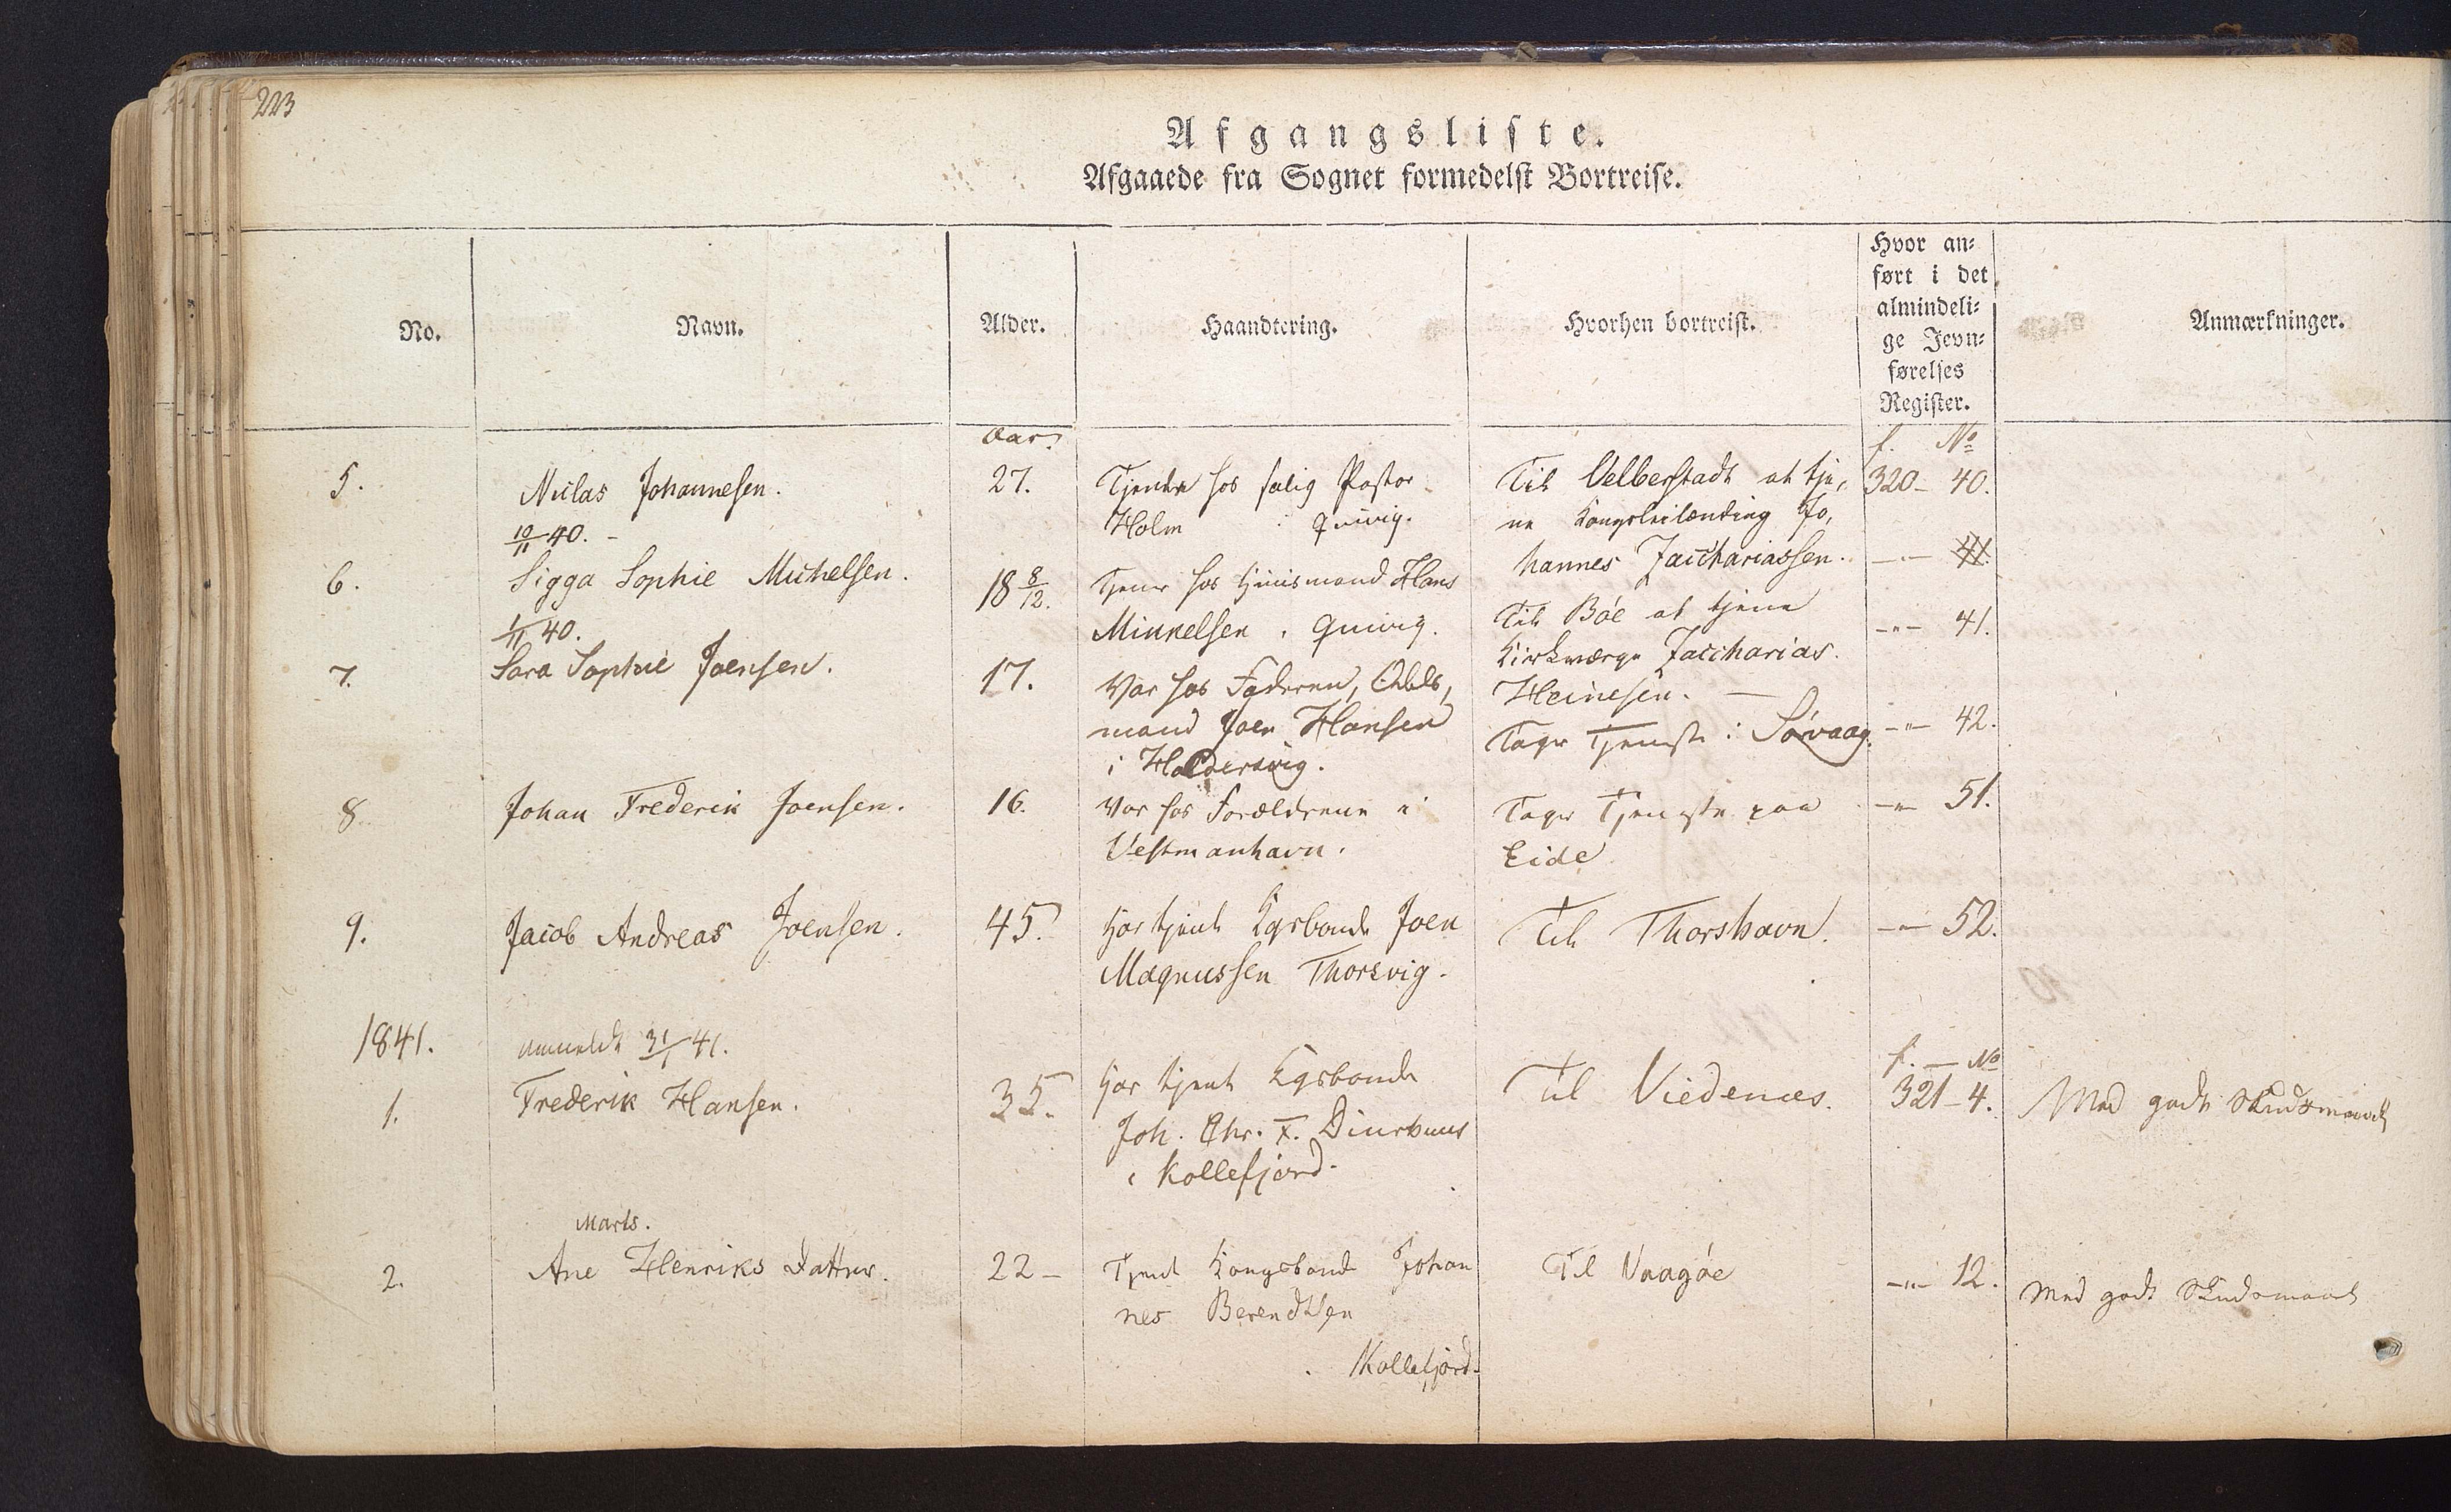 223
Afgangsliste.
Afgaaede fra Sognet formedelst Bortreise.
No.
Navn.
Alder.
Haandtering.
Hvorhen bortreist.
Hvor an=
ført i det
almindeli=
ge Jevn=
førelses
Register.
Anmærkninger.
Aar.
f. No
5.
Niclas Johannesen.
10/11 40. -
27.
Tjente hos salig Pastor
Holm i Qvivig.
Til Velberstadt at tje,
ne Kongsleilænding Jo,
hannes Zacchariassen.
320 - 40.
6.
Sigga Sophie Michelsen.
1/11 40.
18 8/12.
Tjener hos Huusmand Hans
Mikkelsen i Qvivig.
Til Böe at tjene
Kirkeværge Zaccharias
Heinesen. -
-"- 41.
7.
Sara Sophie Joensen.
17.
Var hos Faderen, Odels,
mand Joen Hansen
i Haldersvig.
Tager Tjeneste i Sörvaag.
-"- 42.
8
Johan Frederik Joensen.
16.
Var hos Forældrene i
Vestmanhavn.
Tager Tjeneste paa
Eide
-"- 51.
9.
Jacob Andreas Joensen.
45.
Har tjent Kgsbonde Joen
Magnussen Thorsvig.
Til Thorshavn.
-"- 52.
1841.
anmeldt 31/1 41.
f. - No
1.
Frederik Hansen.
35.
Har tjent Kgsbonde
Joh. Chr. Diurhuus
i Kollefjord.
Til Viedenæs.
321 - 4.
Med godt Skudsmaal
Marts.
2.
Ane Henriks Datter.
22 -
Tjent Kongsbonde Johan
nes Berendtsen
Kollefjord.
Til Vaagöe
-"- 12.
Med godt Skudsmaal